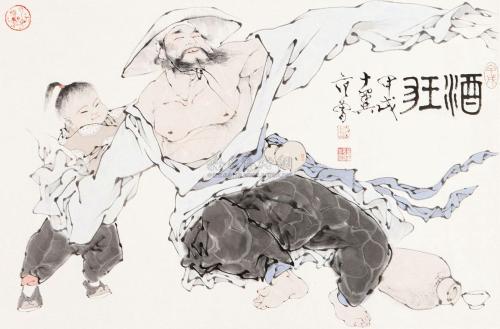 酒狂
甲戌
十翼
范曾